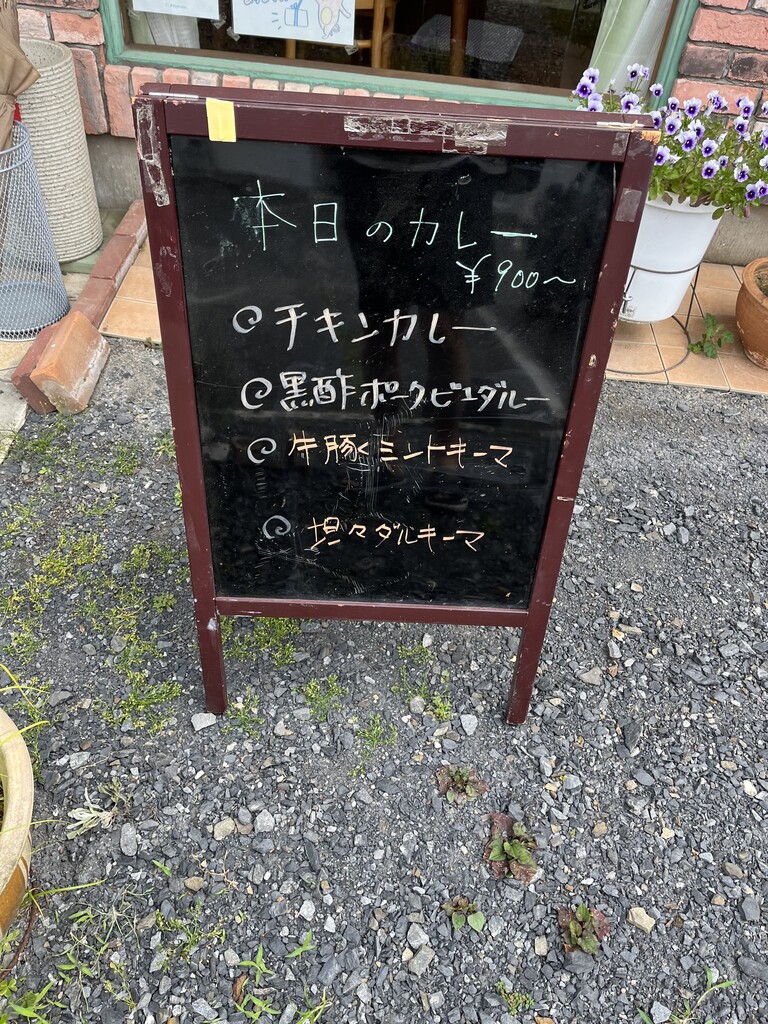 本日のカレー
¥900〜
チキンカレー
黒酢ポークビンダルー
牛豚くミントキーマ
坦々ダルキーマ